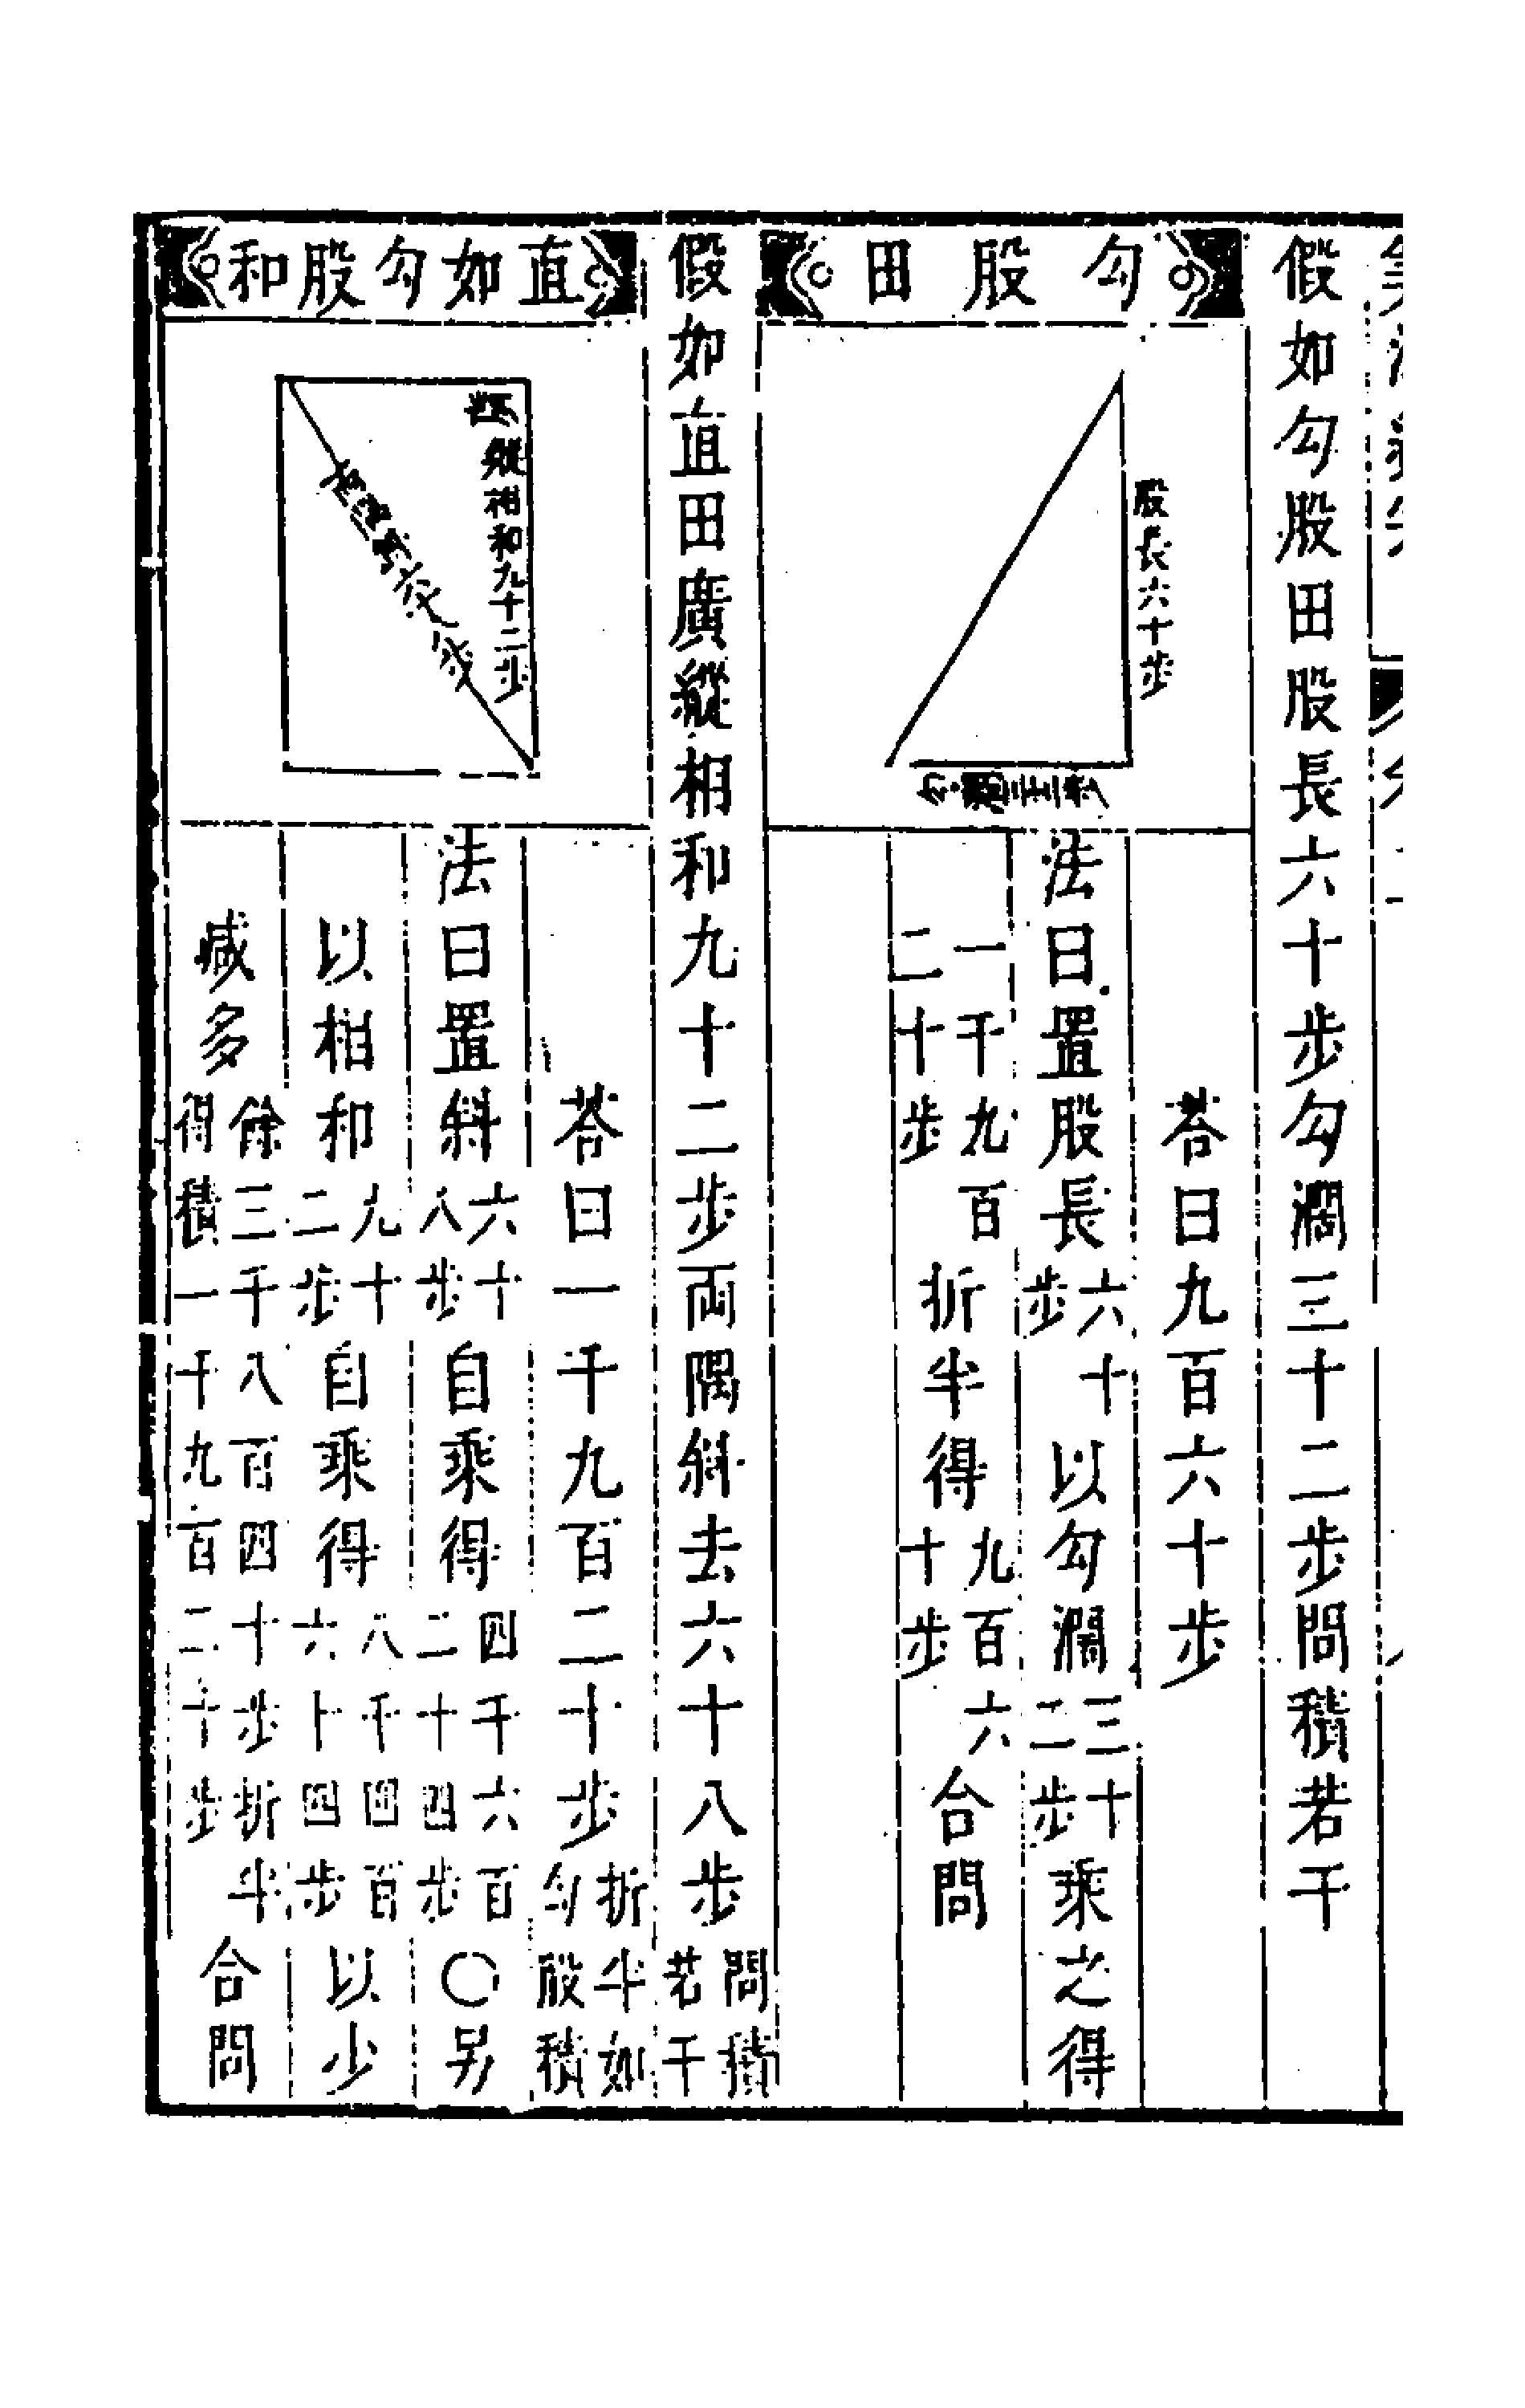 假如勾股田股長六十步勾濶三十二步問積若干
勾股田
股長六十步
荅曰九百六十步
法曰置股長六十步以勾濶三十二步乘之得
一千九百二十步折半得九百六十步合問
假如直田廣縱相和九十二步両隅斜去六十八步問積若干
直如勾股和
縱相和九十二步
荅曰一千九百二十步折半如勾股積
法曰置斜六十八步自乘得四千六百二十四步〇另
以相和九十二步自乘得八千四百六十四步以少
减多餘三千八百四十步折半得積一千九百二十步合問